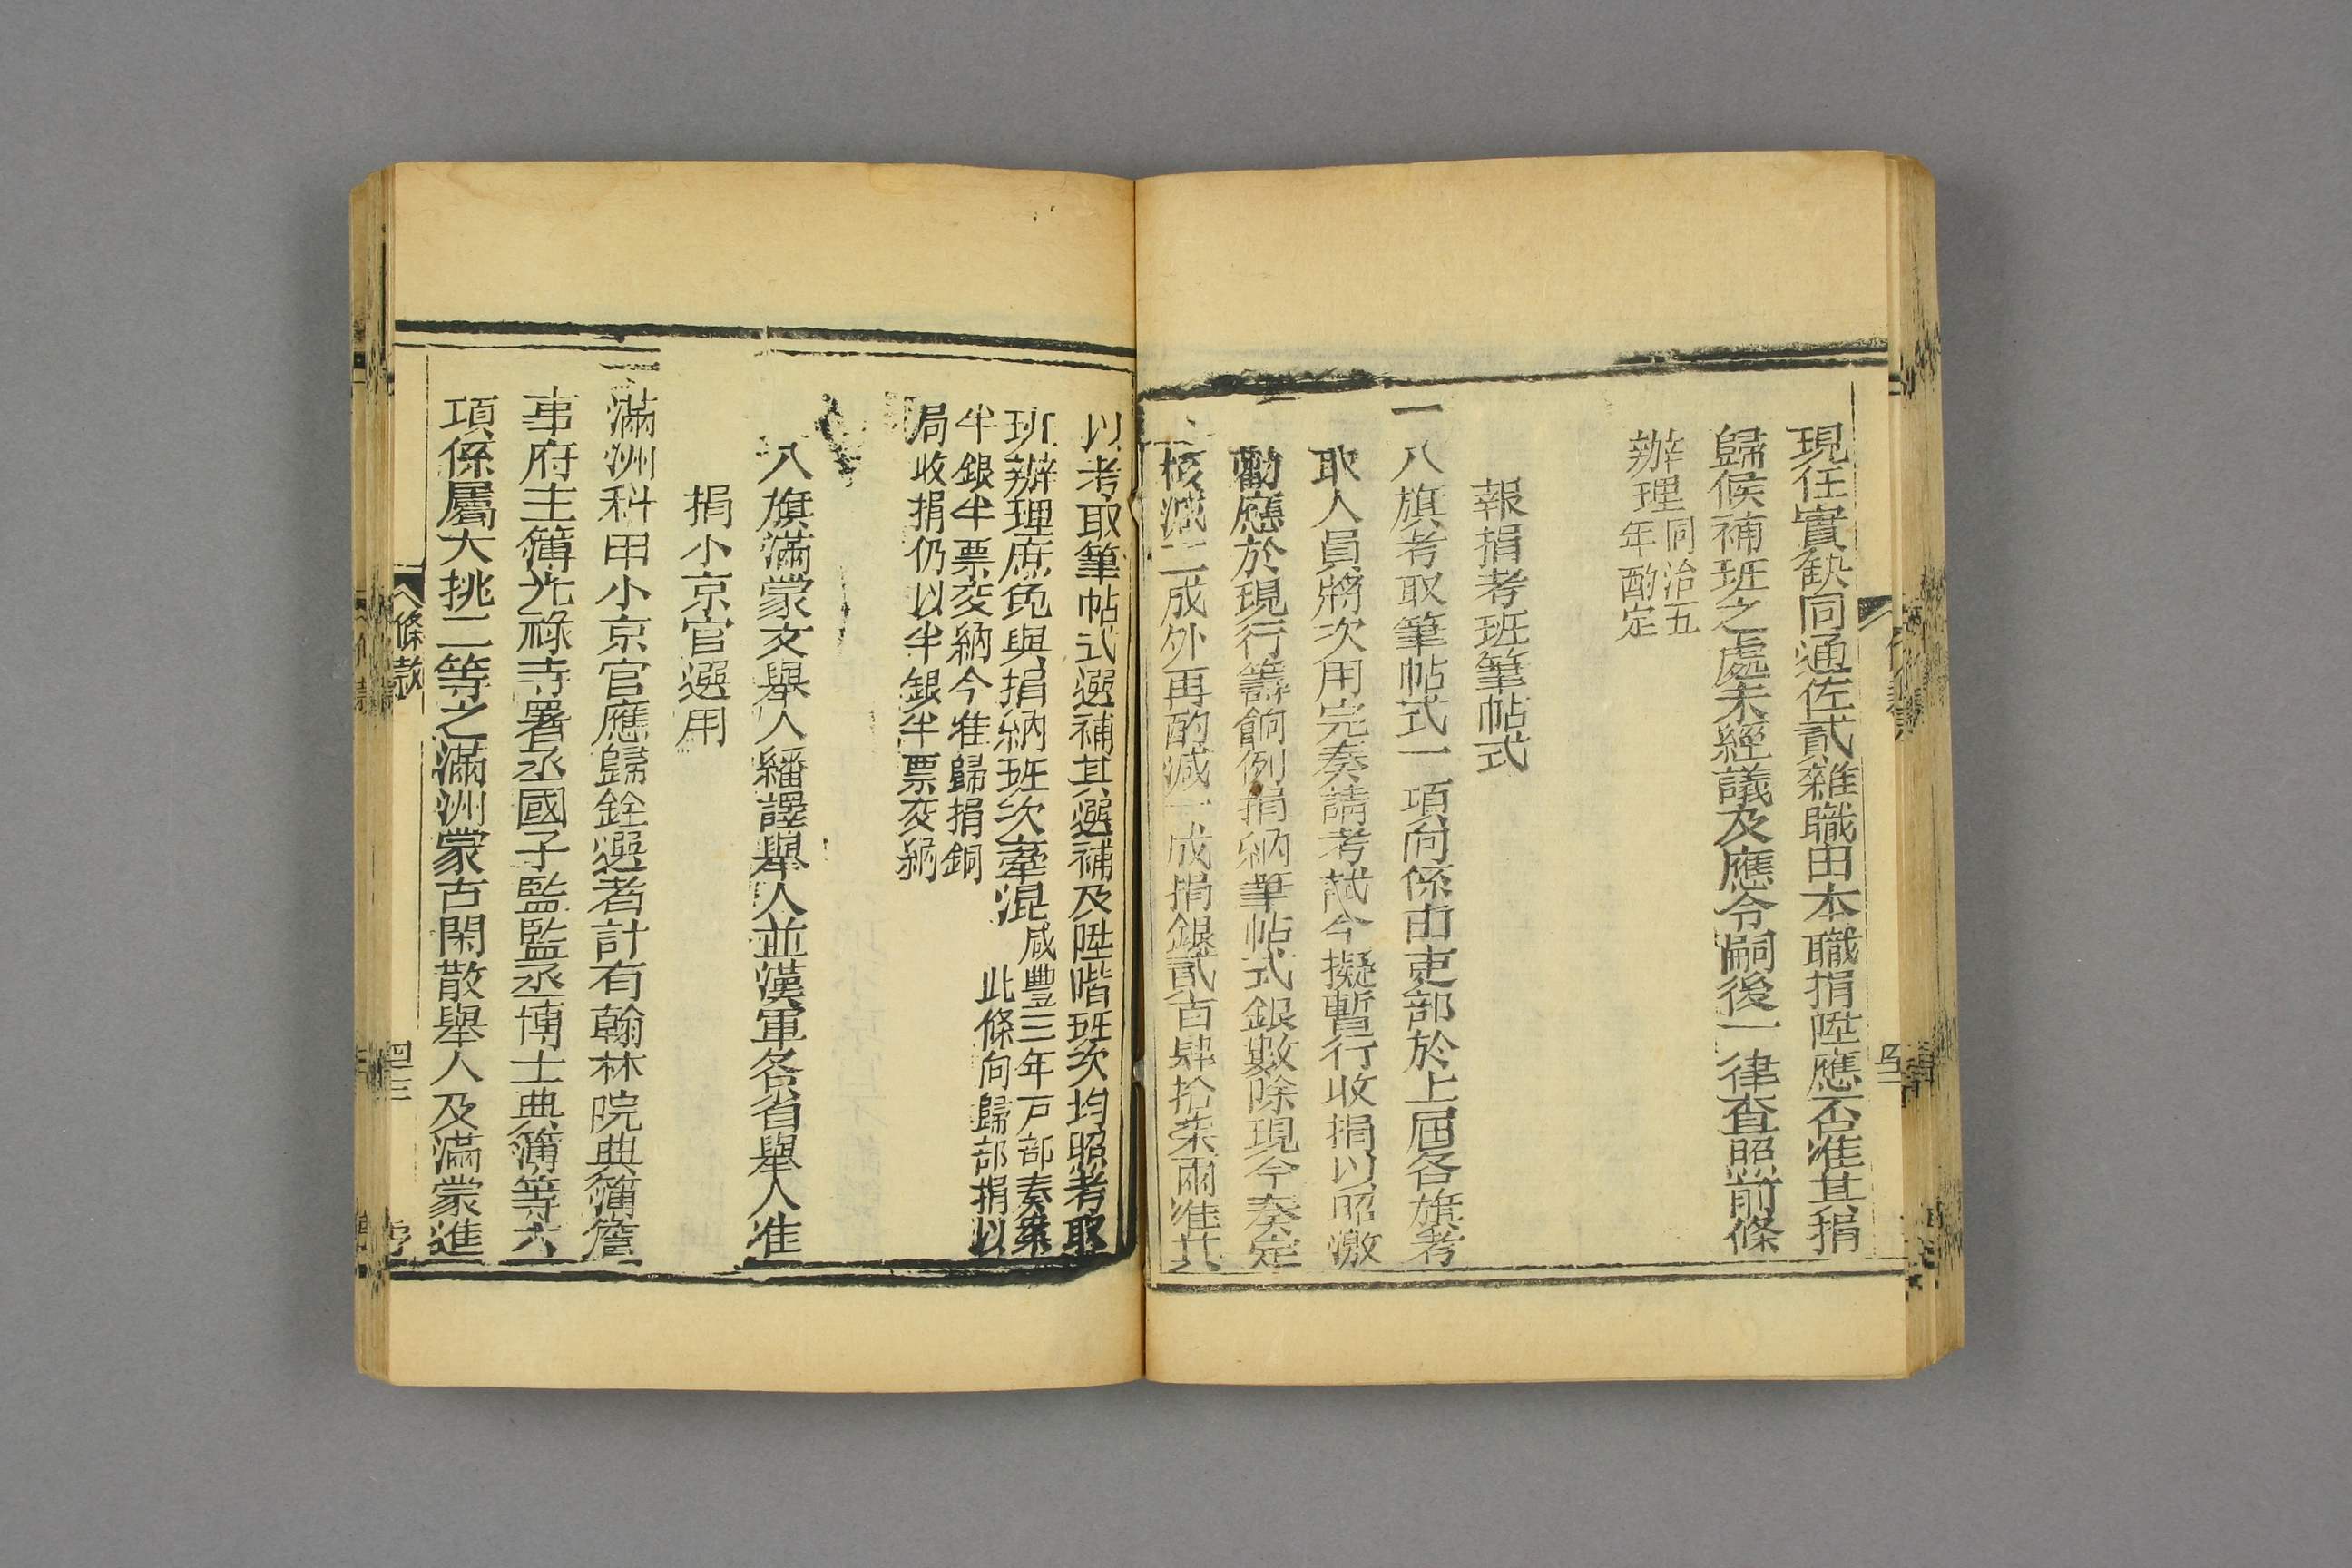 現任實缺同通佐貳雜職由本職捐陞應否准其捐
歸候補班之處未經議及應令嗣後一律查照前條
辦理同治五
年酌定
報捐考班筆帖式
一八旗考取筆帖式一項向係由吏部於上屆各旗考
取人員將次用完奏請考試今擬暫行收捐以昭激
勸應於現行籌餉例捐納筆帖式銀數除現今奏定
核減二成外再酌減一成捐銀貳百肆拾柒兩准其
以考取筆帖式選補其選補及陞階班次均照考取
班辦理庶免與捐納班次牽混咸豐三年戶部奏案
此條向歸部捐以
半銀半票交納今准歸捐銅
局收捐仍以半銀半票交納
八旗滿蒙文舉人繙譯舉人並漢軍各省舉人准
捐小京官選用
一滿洲科甲小京官應歸銓選者計有翰林院典簿詹
事府主簿光祿寺署丞國子監監丞博士典簿等六
項係屬大挑二等之滿洲蒙古閑散舉人及滿蒙進
條款